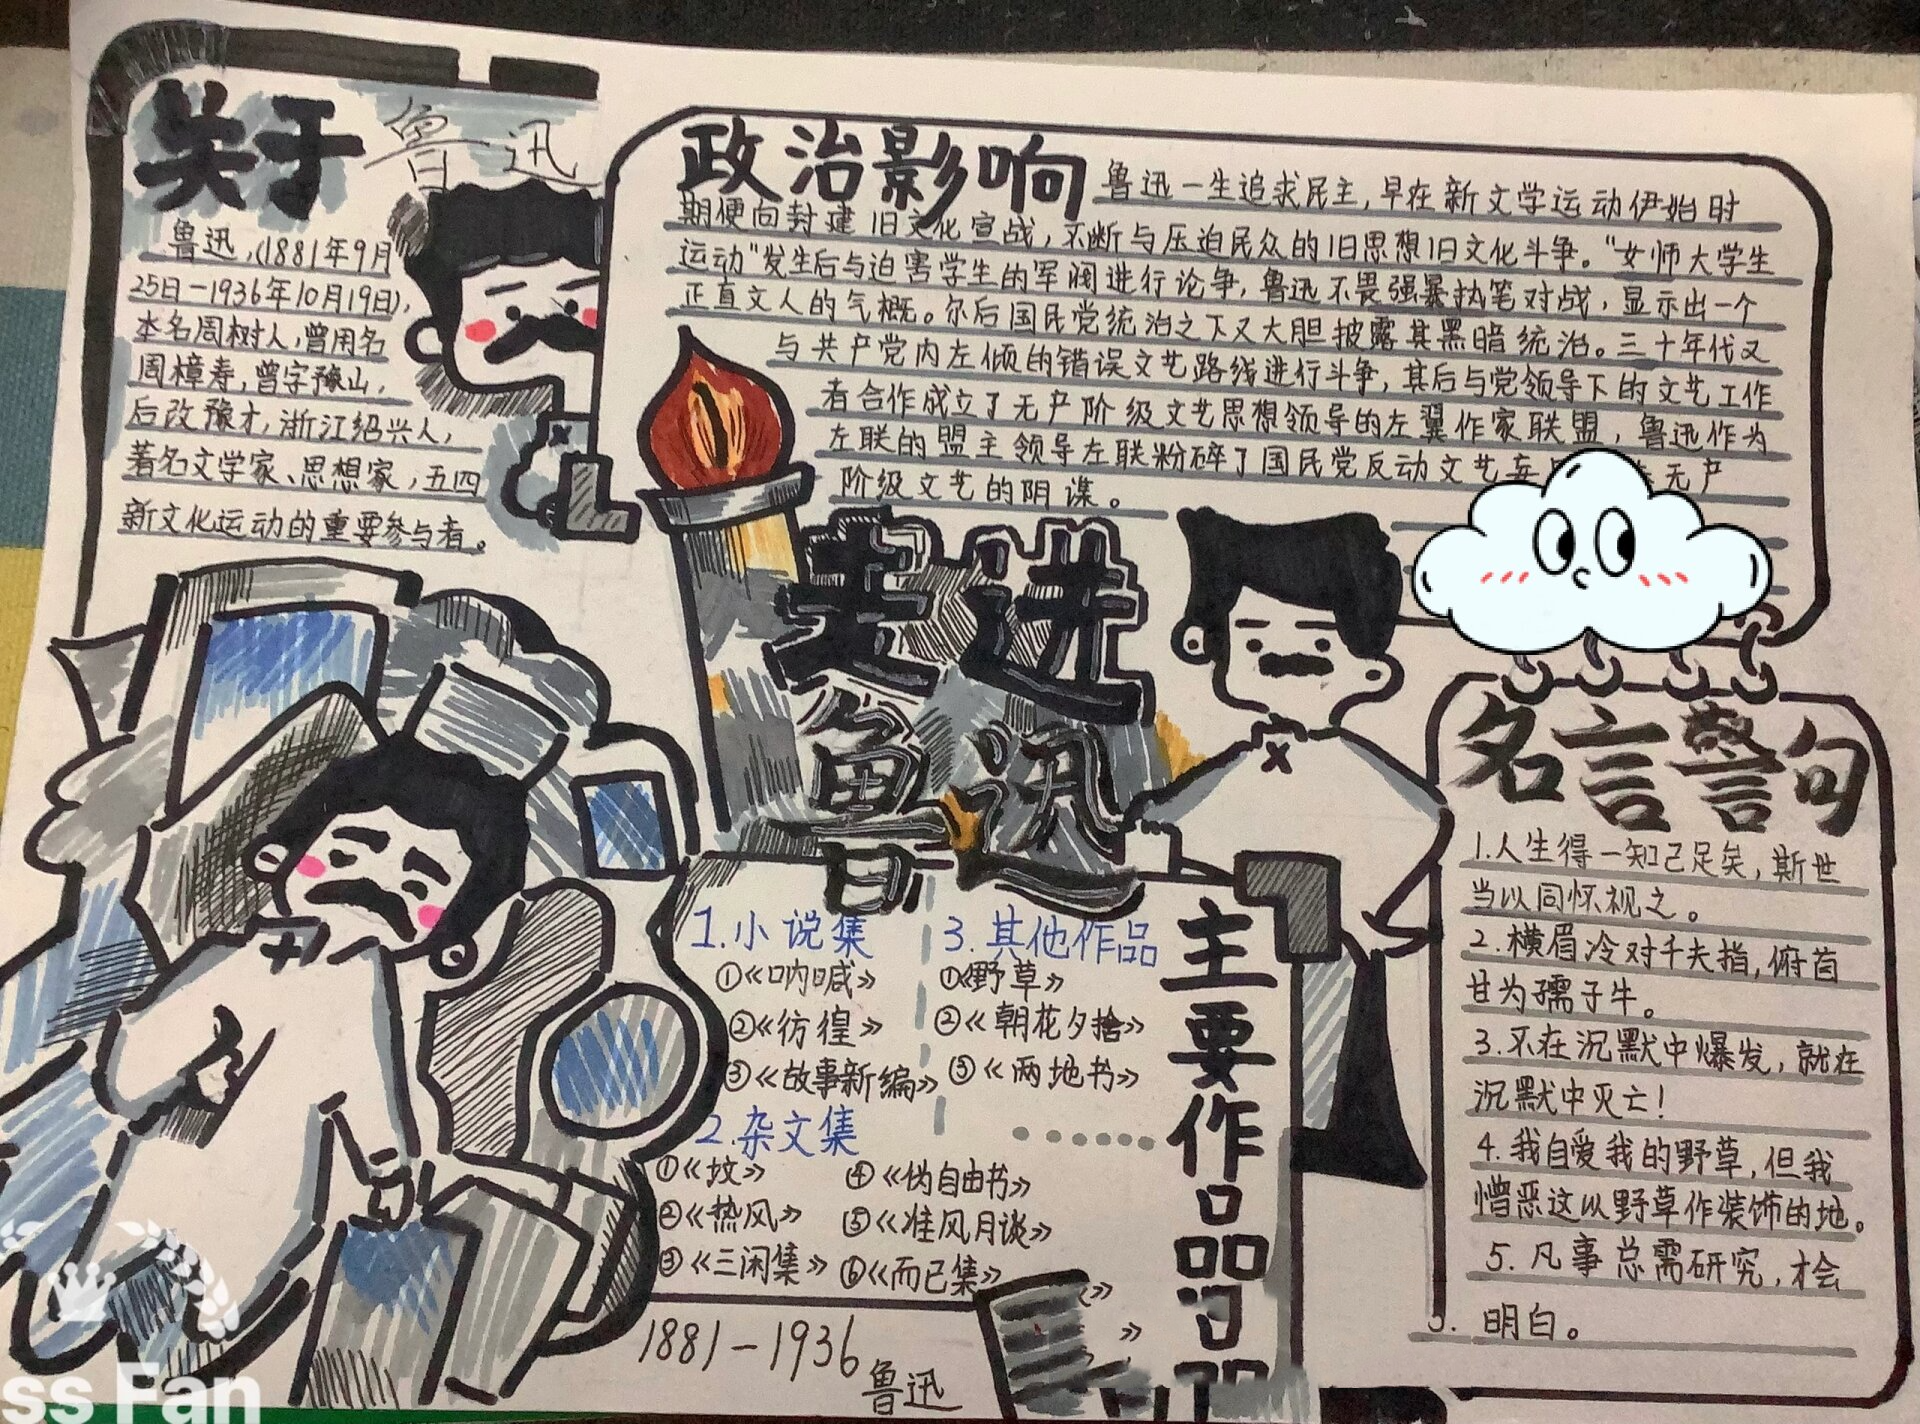 关于鲁迅
鲁迅,(1881年9月
25日-1936年10月19日),
本名周树人,曾用名
周樟寿,曾字豫山,
后改豫才,浙江绍兴人,
著名文学家、思想家,五四
新文化运动的重要参与者。
政治影响
鲁迅一生追求民主,早在新文学运动伊始时
期便向封建旧文化宣战,不断与压迫民众的旧思想旧文化斗争。“女师大学生
运动”发生后与迫害学生的军阀进行论争,鲁迅不畏强暴执笔对战,显示出一个
正直文人的气概。尔后国民党统治之下又大胆披露其黑暗统治。三十年代又
与共产党内左倾的错误文艺路线进行斗争,其后与党领导下的文艺工作
者合作成立了无产阶级文艺思想领导的左翼作家联盟,鲁迅作为
左联的盟主领导左联粉碎了国民党反动文艺 无产
阶级文艺的阴谋。
走进
鲁迅
主要作品
1.小说集
①《呐喊》
②《彷徨》
③《故事新编》
2.杂文集
①《坟》
②《热风》
③《三闲集》
④《伪自由书》
⑤《准风月谈》
⑥《而已集》
3.其他作品
①《野草》
②《朝花夕拾》
③《两地书》
1881-1936
鲁迅
名言警句
1.人生得一知己足矣,斯世
当以同怀视之。
2.横眉冷对千夫指,俯首
甘为孺子牛。
3.不在沉默中爆发,就在
沉默中灭亡!
4.我自爱我的野草,但我
憎恶这以野草作装饰的地。
5.凡事总需研究,才会
明白。
ss Fan